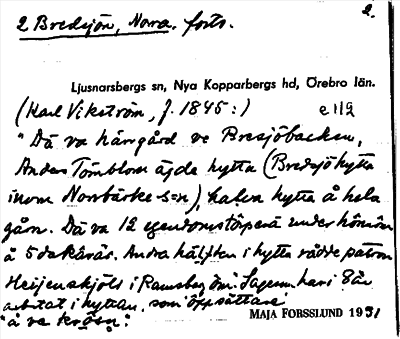 2 Bredsjön, Nora. forts. 2.
Ljusnarsbergs sn, Nya Kopparbergs hd, Örebro län.
(Karl Vikström, f. 1845:)
"Då va härrgård ve Bresjöbacken,
Anders Tömblom ägde hytta (Bredsjöhytta
inom Norrbärke s:n), halva hytta å hela
gårn. Då va 12 egendomstorperä under
å 5 dakarär. Andra hälften i hytta rådde patron
Heijenskjöld i Ramsberg om. Sagesm. har i 8 år
arbetat i hyttan, som "öppsättare"
"å ve krösen".
MAJA FORSSLUND 1931